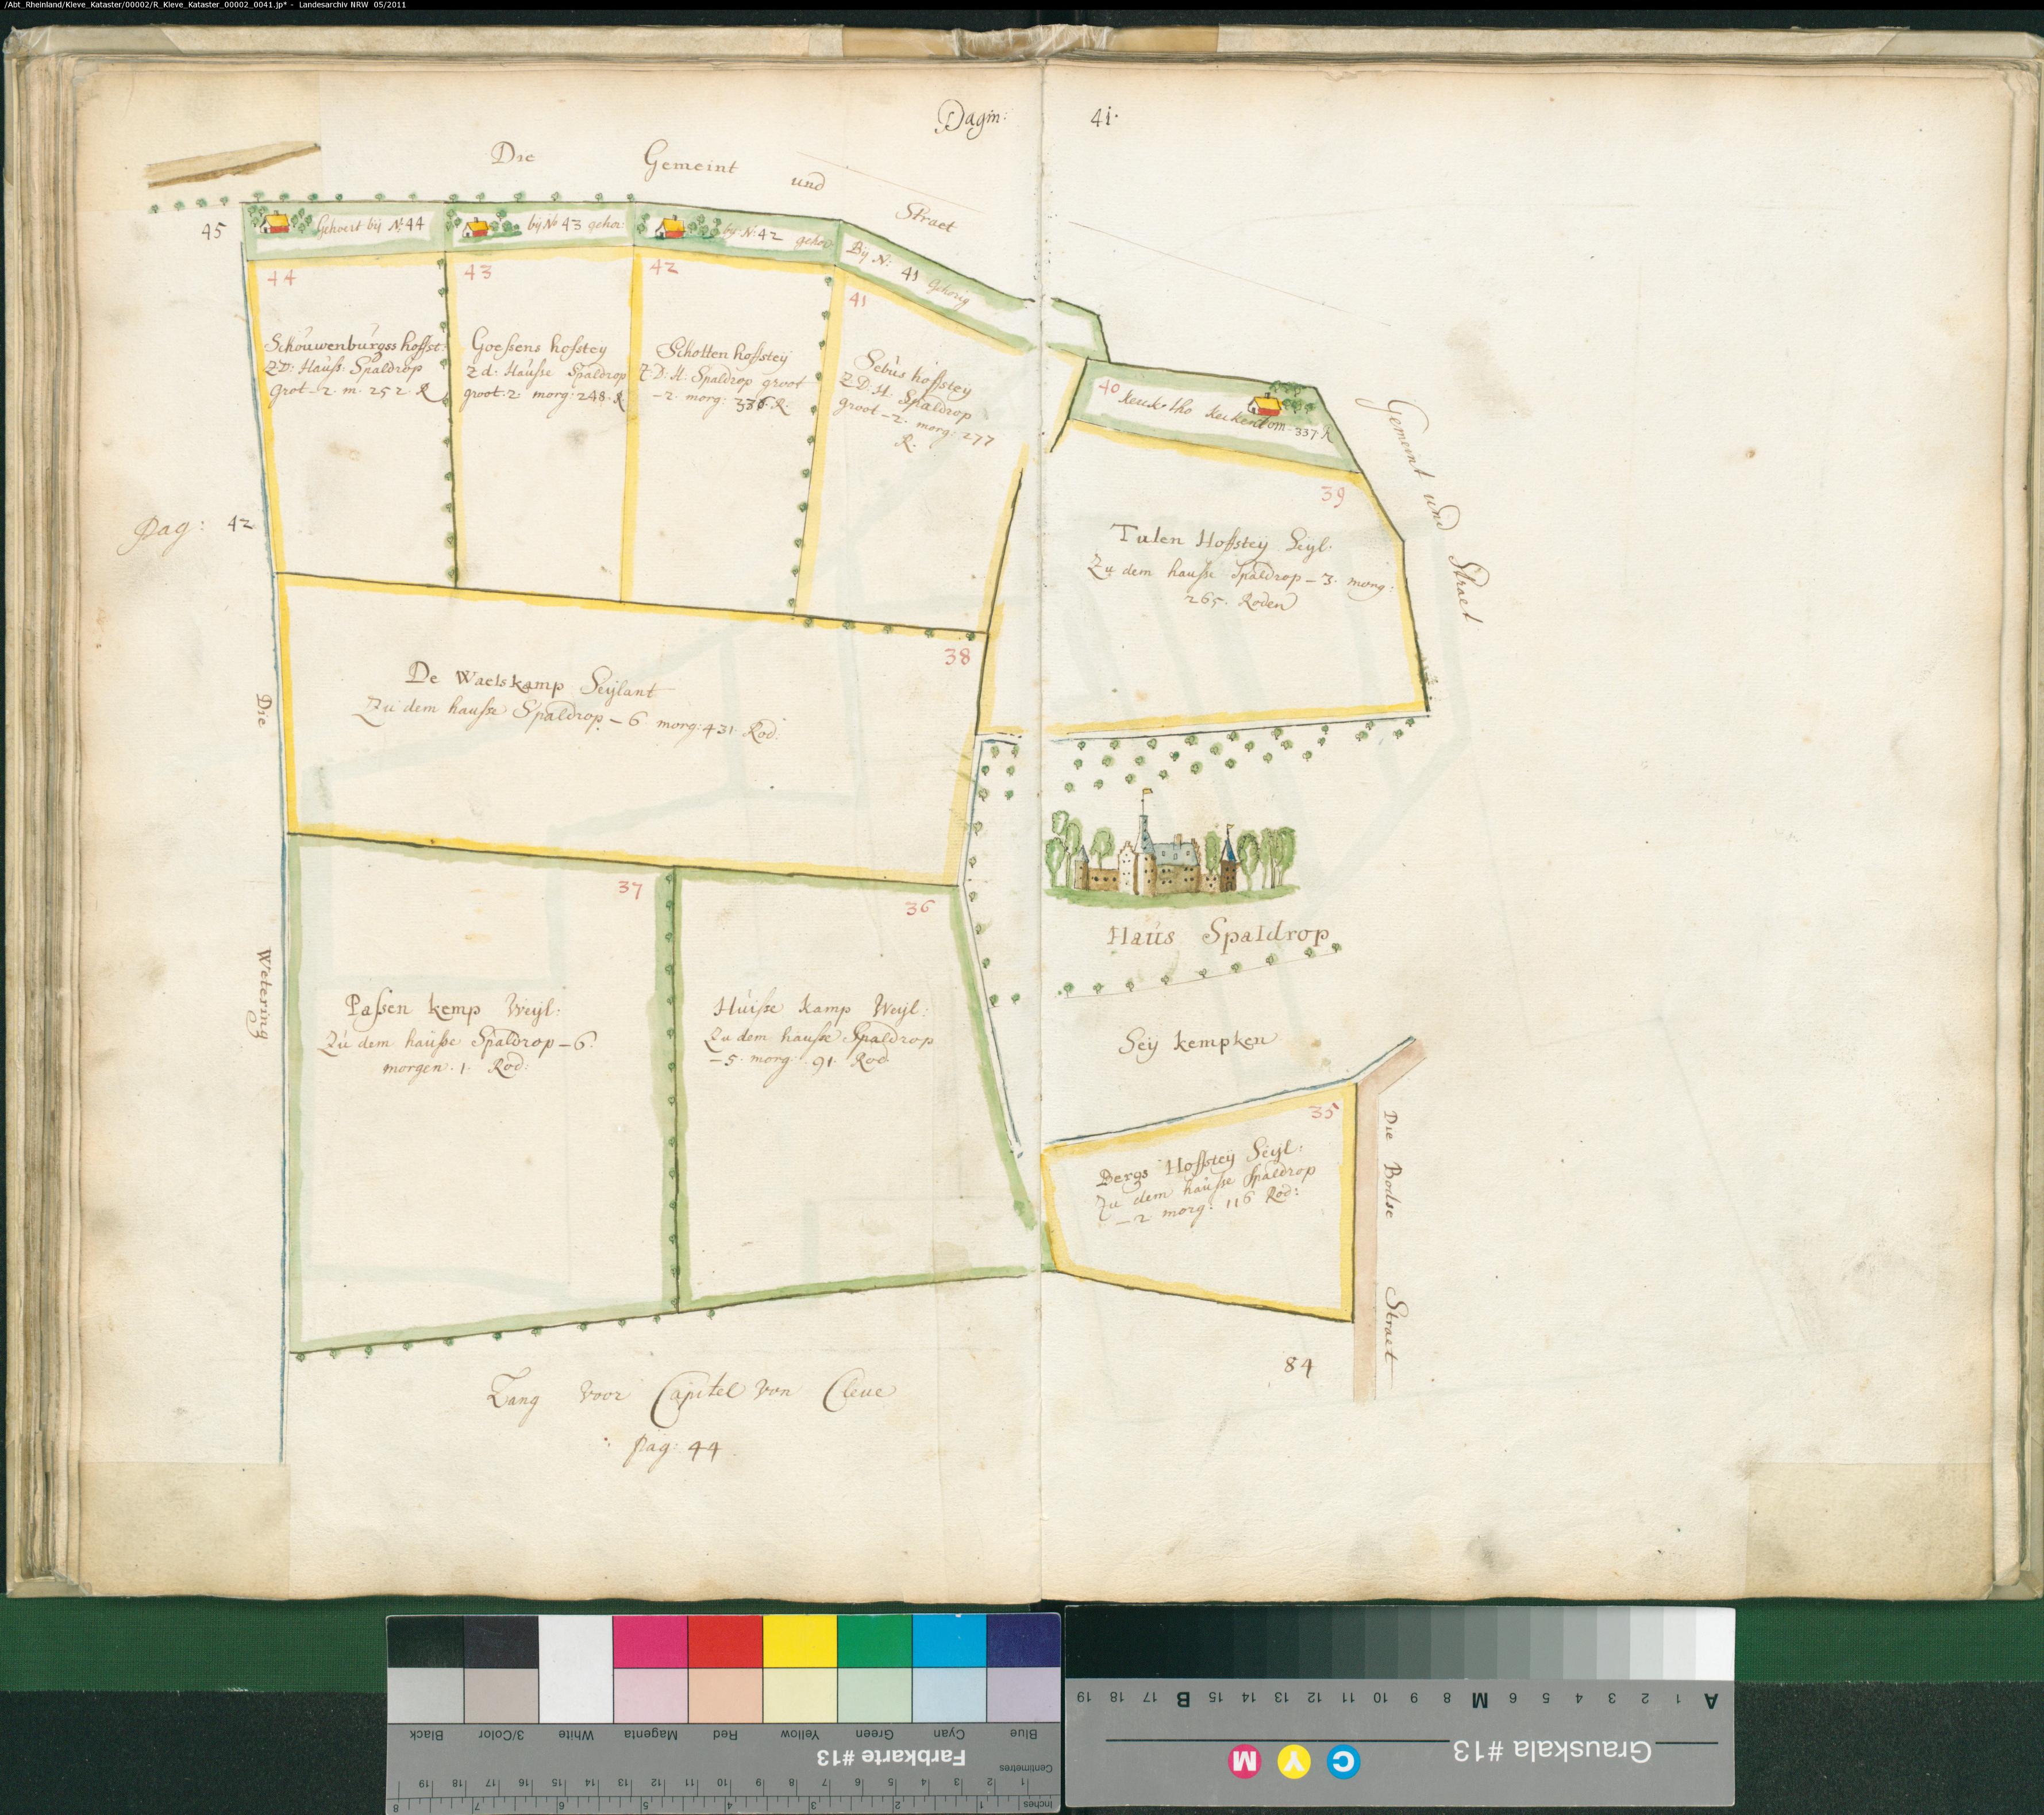 /Abt_Rheinland/Kleve_Kataster/00002/R_Kleve_Kataster_00002_0041.jp* - Landesarchiv NRW 05/2011
Pagin: 41.
Die Gemeint und Straet
45
Gehoert bij N: 44
bij No 43 gehor:
by N: 42 gehor:
Bij N: 41 gehorig
44
Schouwenburgss hoffst:
Z D: Hauß: Spaldrop
Grot - 2. m. 252. R
43
Goeßens hofstey
Z d: Haußse Spaldrop
groot. 2 morg: 248. R
42
Scholten hoffstey
Z. D. H. Spaldrop groot
- 2. morg: R.
41
Sebus hoffstey
Z. D. H. Spaldrop
groot - 2. morg: 277
R.
40
keukentom - 337. R
39
Tulen Hoffsteij Seijl.
Zu dem hauße Spaldrop - 3. morg:
265. Roden
Gemeint und Straet
Pag: 42
38
De Waelskamp Seijlant
Zu dem hauße Spaldrop - 6 morg: 431 Rod:
Die Wetering
37
Paßen kemp Weijl:
Zu dem hauße Spaldrop - 6.
morgen. 1. Rod:
36
Huiße kamp Weijl:
Zu dem hauße Spaldrop
- 5. morg: 91. Rod
Haus Spaldrop
Seij kempken
35
Bergs Hoffsteij Seijl:
Zu dem hauße Spaldrop
- 2 morg: 116 Rod:
Die Bodse Straet
84
Zang voor Capitel von Cleve
pag: 44
Black
3/Color
White
Magenta
Red
Yellow
Green
Cyan
Blue
Farbkarte #13
Centimetres
19 18 17 16 15 14 13 12 11 10 9 8 7 6 5 4 3 2 1
8 7 6 5 4 3 2 1 Inches
19 18 17 B 15 14 13 12 11 10 9 8 M 6 5 4 3 2 1 A
M Y C
Grauskala #13